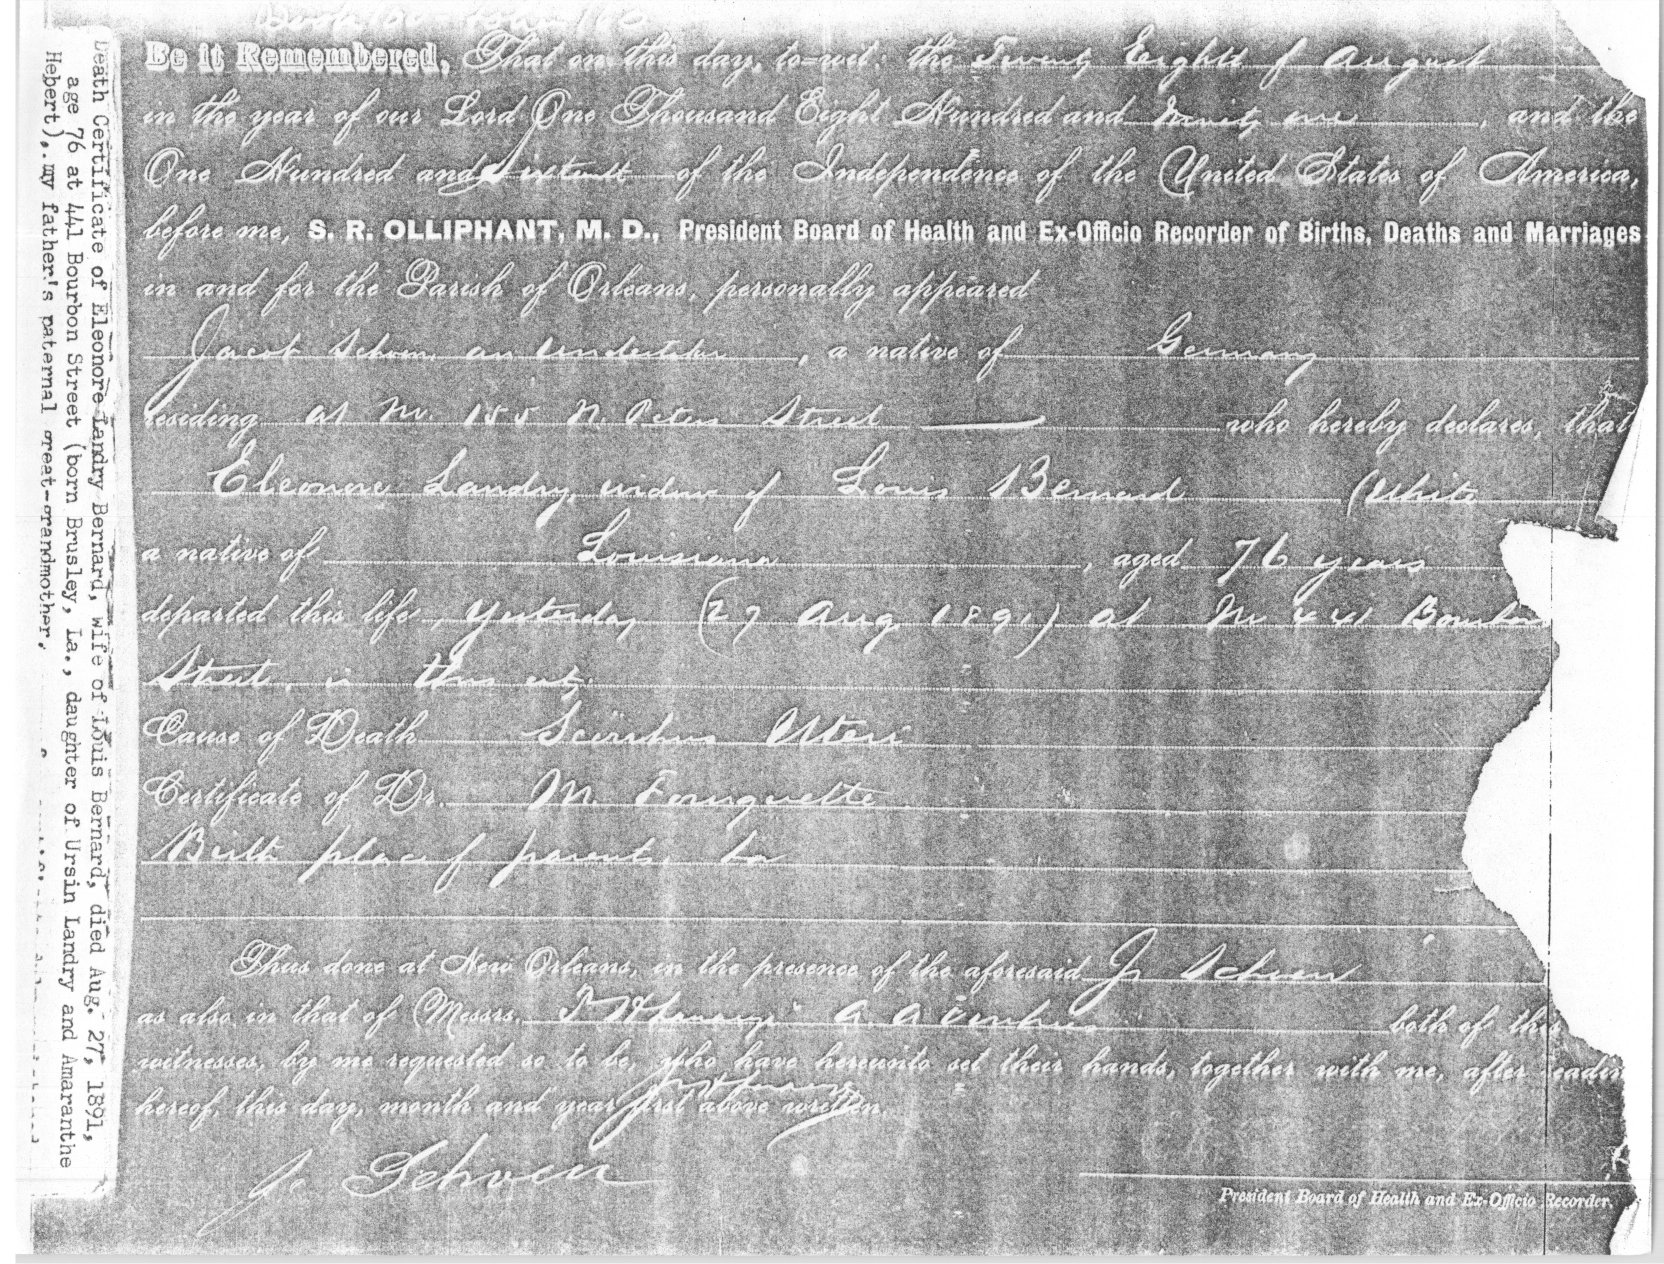 Be it Remembered, That on this day, to-wit: the Twenty Eight of August
in the year of our Lord One Thousand Eight Hundred and Ninety one, and the
One Hundred and Sixteenth of the Independence of the United States of America,
before me, S. R. OLLIPHANT, M. D., President Board of Health and Ex-Officio Recorder of Births, Deaths and Marriages
in and for the Parish of Orleans, personally appeared
Jacob Schoen, an Undertaker, a native of Germany
residing at No. 155 N. Peters Street who hereby declares, that
Eleonore Landry, widow of Louis Bernard (White
a native of Louisiana, aged 76 years
departed this life, yesterday (27 Aug 1891) at No 441 Bourbon
Street, in this city.
Cause of Death Scirrhus Uteri
Certificate of Dr. M. Fourguette
Birth place of parents. La
Thus done at New Orleans, in the presence of the aforesaid J. Schoen
as also in that of Messrs. both of this
witnesses, by me requested so to be, who have hereunto set their hands, together with me, after readin
hereof, this day, month and year first above written.
J. Schoen
President Board of Health and Ex-Officio Recorder.
Death Certificate of Eleonore Landry Bernard, wife of Louis Bernard, died Aug. 27, 1891,
age 76 at 441 Bourbon Street (born Brusley, La., daughter of Ursin Landry and Amaranthe
Hebert), my father's paternal great-grandmother.